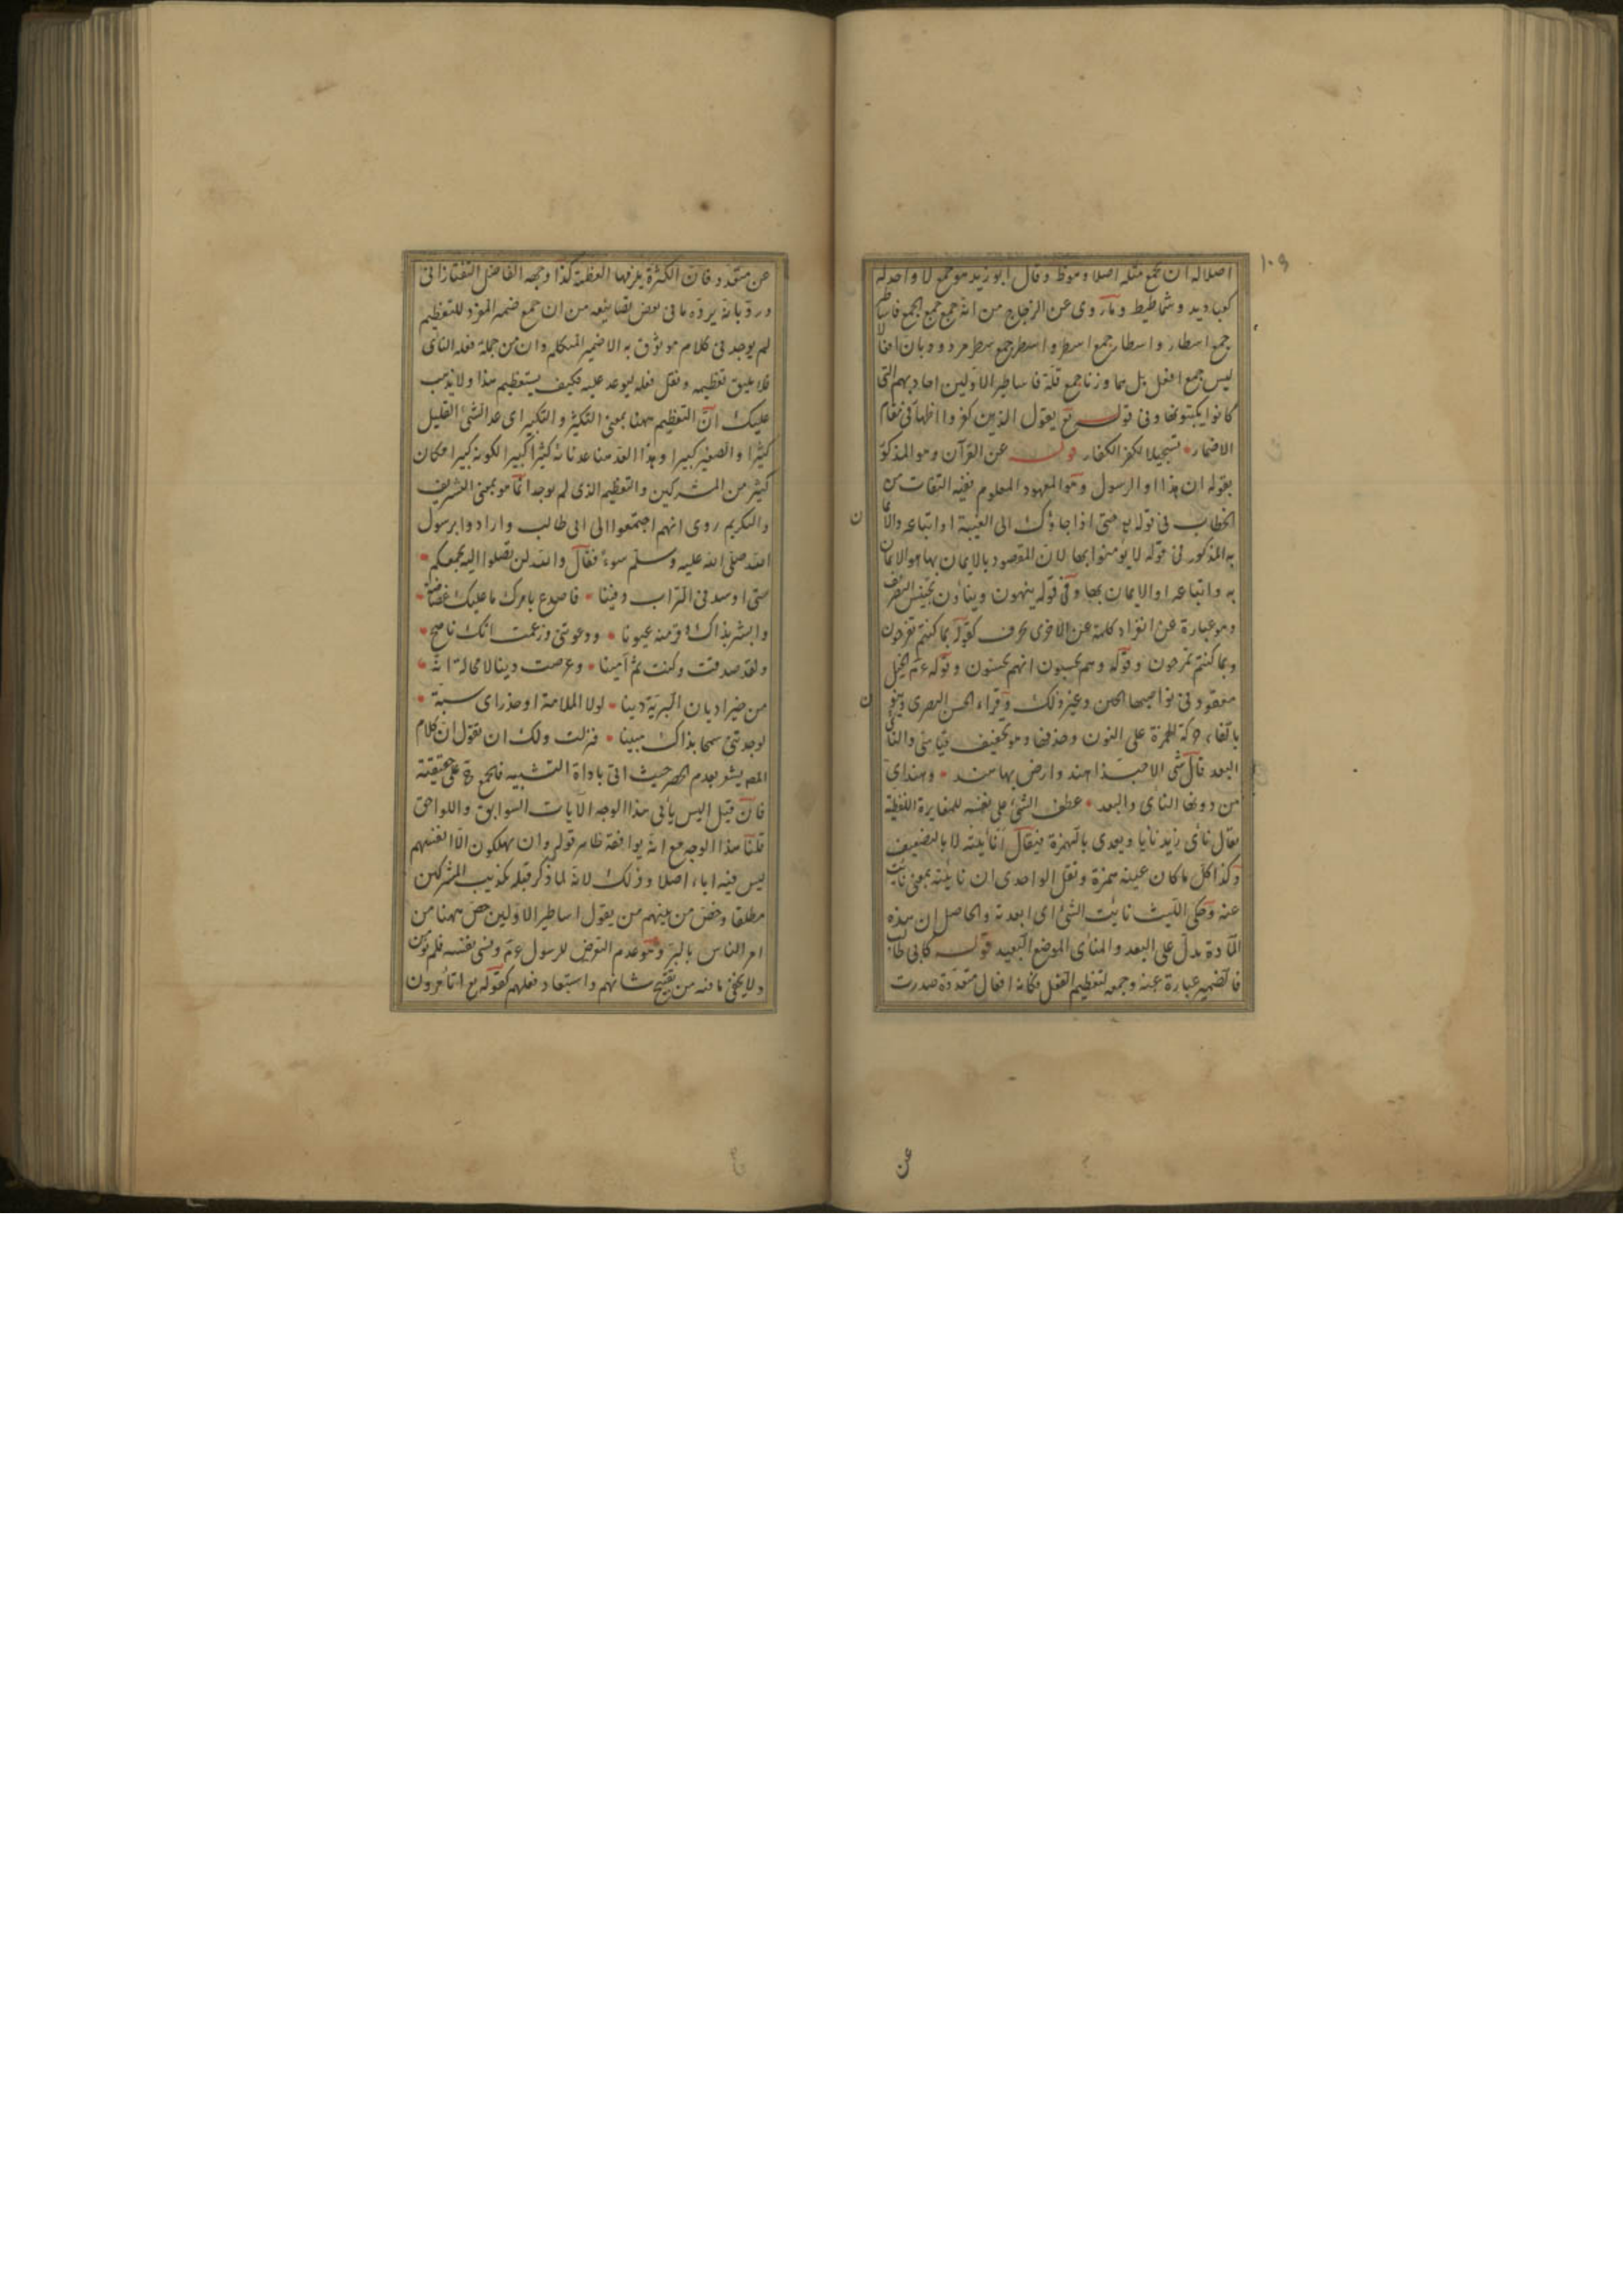 ١٠٩
اصلا له ان جمع مثله اصلا وموظ وقال ابو زيد هو جمع لا واحد له
كعباديد وشماطيط وما روى عن الزجاج من انه جمع جمع الجمع فاساطير
جمع اسطار واسطار جمع اسطر واسطر جمع سطر مردود بان افعالا
ليس جمع افعل بل هما وزنا جمع قلة فاساطير الاولين احاديثهم التى
كانوا يكتبونها وفى قوله تع يقول الذين كفروا اظهار فى مقام
الاضمار تسجيلا لكفر الكفار قوله عن القرآن وهو المذكور
بقوله ان هذا او الرسول وهو المعهود المعلوم ففيه التفات من
الخطاب فى قوله حتى اذا جاؤك الى الغيبة او اتباعه والايمان
به المذكور فى قوله لا يؤمنوا بها لان المقصود بالايمان بها هو الايمان
به واتباعه او الايمان بها وفى قوله ينهون وينأون تجنيس التصريف
وهو عبارة عن انفراد كلمة عن الاخرى بحرف كقوله بما كنتم تفرحون
وبما كنتم تمرحون وقوله وهم يحسبون انهم يحسنون وقوله عم الخيل
معقود فى نواصيها الخير وغير ذلك وقراء الحسن البصرى وينون
بالقاء حركة الهمزة على النون وحذفها وهو تخفيف قياسى والنأى
البعد قال شى الا حبذا هند وارض بها هند وهند اتى
من دونها النأى والبعد عطف الشئ على نفسه للمغايرة اللفظية
يقال نأى زيد نأيا ويعدى بالهمزة فيقال أنأيته لا بالتضعيف
وكذا كل ما كان عينه همزة ونقل الواحدى ان نأيته بمعنى نأيت
عنه وحكى الليث نأيت الشئ اى ابعدته والحاصل ان هذه
المادة يدل على البعد والمنأى الموضع البعيد قوله كابى طالب
فالضمير عبارة عنه وجمعه لتعظيم الفعل فكانه افعال متعددة صدرت
عن
عن متعدد فان الكثرة يلزمها العظمة كذا وجهه الفاضل التفتازانى
ورد بانه يرده ما فى بعض تصانيفه من ان جمع ضمير المفرد للتعظيم
لم يوجد فى كلام موثوق به الا ضمير المتكلم وان من جملة فعله النأى
فلا يليق تعظيمه ونقل فعله ليوعد عليه فكيف يستعظم هذا ولا يذهب
عليك ان التعظيم ههنا بمعنى التكثير والتكبير اى عد الشئ القليل
كثيرا والصغير كبيرا وبهذا القدر هنا عد نائه كثيرا كبيرا لكونه كبيرا فكان
كثير من المشركين والتعظيم الذى لم يوجد انما هو بمعنى التشريف
والتكريم روى انهم اجتمعوا الى ابى طالب وارادوا برسول
الله صلى الله عليه وسلم سوءً فقال والله لن يصلوا اليك بجمعهم
حتى اوسد فى التراب دفينا فاصدع بامرك ما عليك غضاضة
وابشر بذاك وقر منه عيونا ودعوتنى وزعمت انك ناصح
ولقد صدقت وكنت ثم امينا وعرضت دينا لا محالة انه
من خير اديان البرية دينا لولا الملامة او حذارى سبة
لوجدتنى سمحا بذاك مبينا فنزلت ولك ان تقول ان كلام
المصـ يشعر بعدم الحصر حيث اتى باداة التشبيه فالجمع ح على حقيقته
فان قيل اليس يأبى هذا الوجه الآيات السوابق واللواحق
قلنا هذا الوجه مع انه يوافقه ظاهر قوله وان يهلكون الا انفسهم
ليس فيه اباء اصلا وذلك لانه لما ذكر قبله تكذيب المشركين
مطلقا وخص من بينهم من يقول اساطير الاولين خص ههنا من
امر الناس بالبر وهو عدم التعرض للرسول عم ونسى نفسه فلم يؤمن
ولا يخفى ما فيه من تقبيح شانهم واستبعاد فعلهم كقوله تع اتأمرون